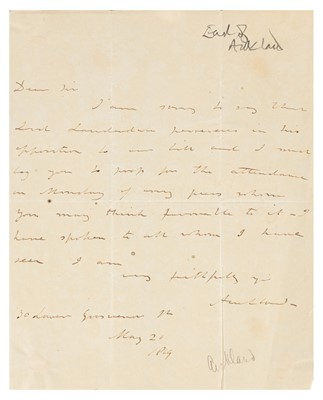 Earl of
Auckland
Dear Sir
I am sorry to say that
Lord perseveres in his
opposition to our bill and I must
beg you to for the attendance
on Monday of any peers whom
You may think favorable to it – I
have spoken to all whom I have
seen I am
very faithfully yrs
Auckland
Grosvenor St
May 21
Auckland